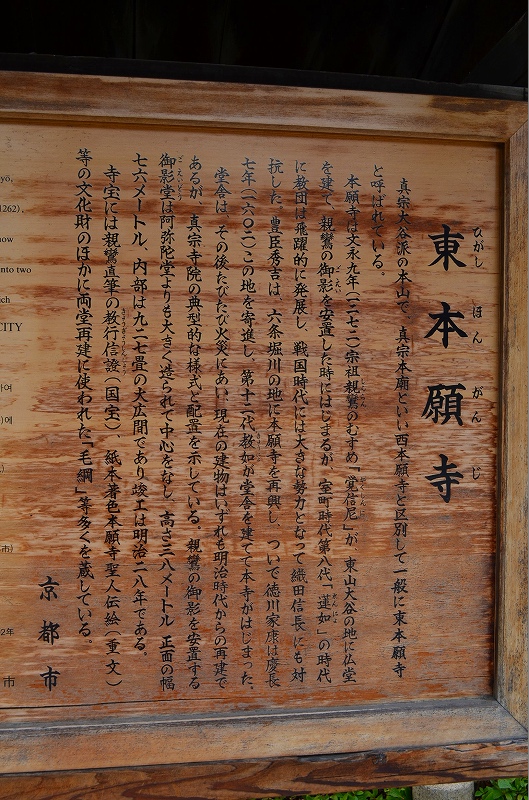 東本願寺
ひがし ほん がん じ
真宗大谷派の本山で、真宗本廟といい西本願寺と区別して一般に東本願寺
と呼ばれている。
本願寺は文永九年(一二七二)宗祖親鸞のむすめ「覚信尼」が、東山大谷の地に仏堂
を建て、親鸞の御影を安置した時にはじまるが、室町時代第八代「蓮如」の時代
に教団は飛躍的に発展し、戦国時代には大きな勢力となって織田信長にも対
抗した。豊臣秀吉は、六条堀川の地に本願寺を再興し、ついで徳川家康は慶長
七年(一六〇二)この地を寄進し、第十二代教如が堂舎を建てて本寺がはじまった。
堂舎は、その後たびたび火災にあい、現在の建物はいずれも明治時代からの再建で
あるが、真宗寺院の典型的な様式と配置を示している。親鸞の御影を安置する
御影堂は阿弥陀堂よりも大きく造られて中心をなし、高さ三八メートル 正面の幅
七六メートル、内部は九二七畳の大広間であり竣工は明治二八年である。
寺宝には親鸞直筆の教行信證(国宝)、紙本着色本願寺聖人伝絵(重文)
等の文化財のほかに両堂再建に使われた「毛綱」等多くを蔵している。
京都市
1262),
now
into two
ich
CITY
하여
)에
市)
2年
市